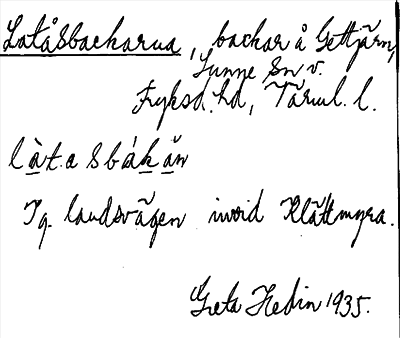 Latåsbackarna, backar å Gettjärn,
Sunne sn v.
Fryksd. hd, Värml. l.
làt.a sbákăn
Tg. landsvägen invid Klättmyra.
Greta Hedin 1935.